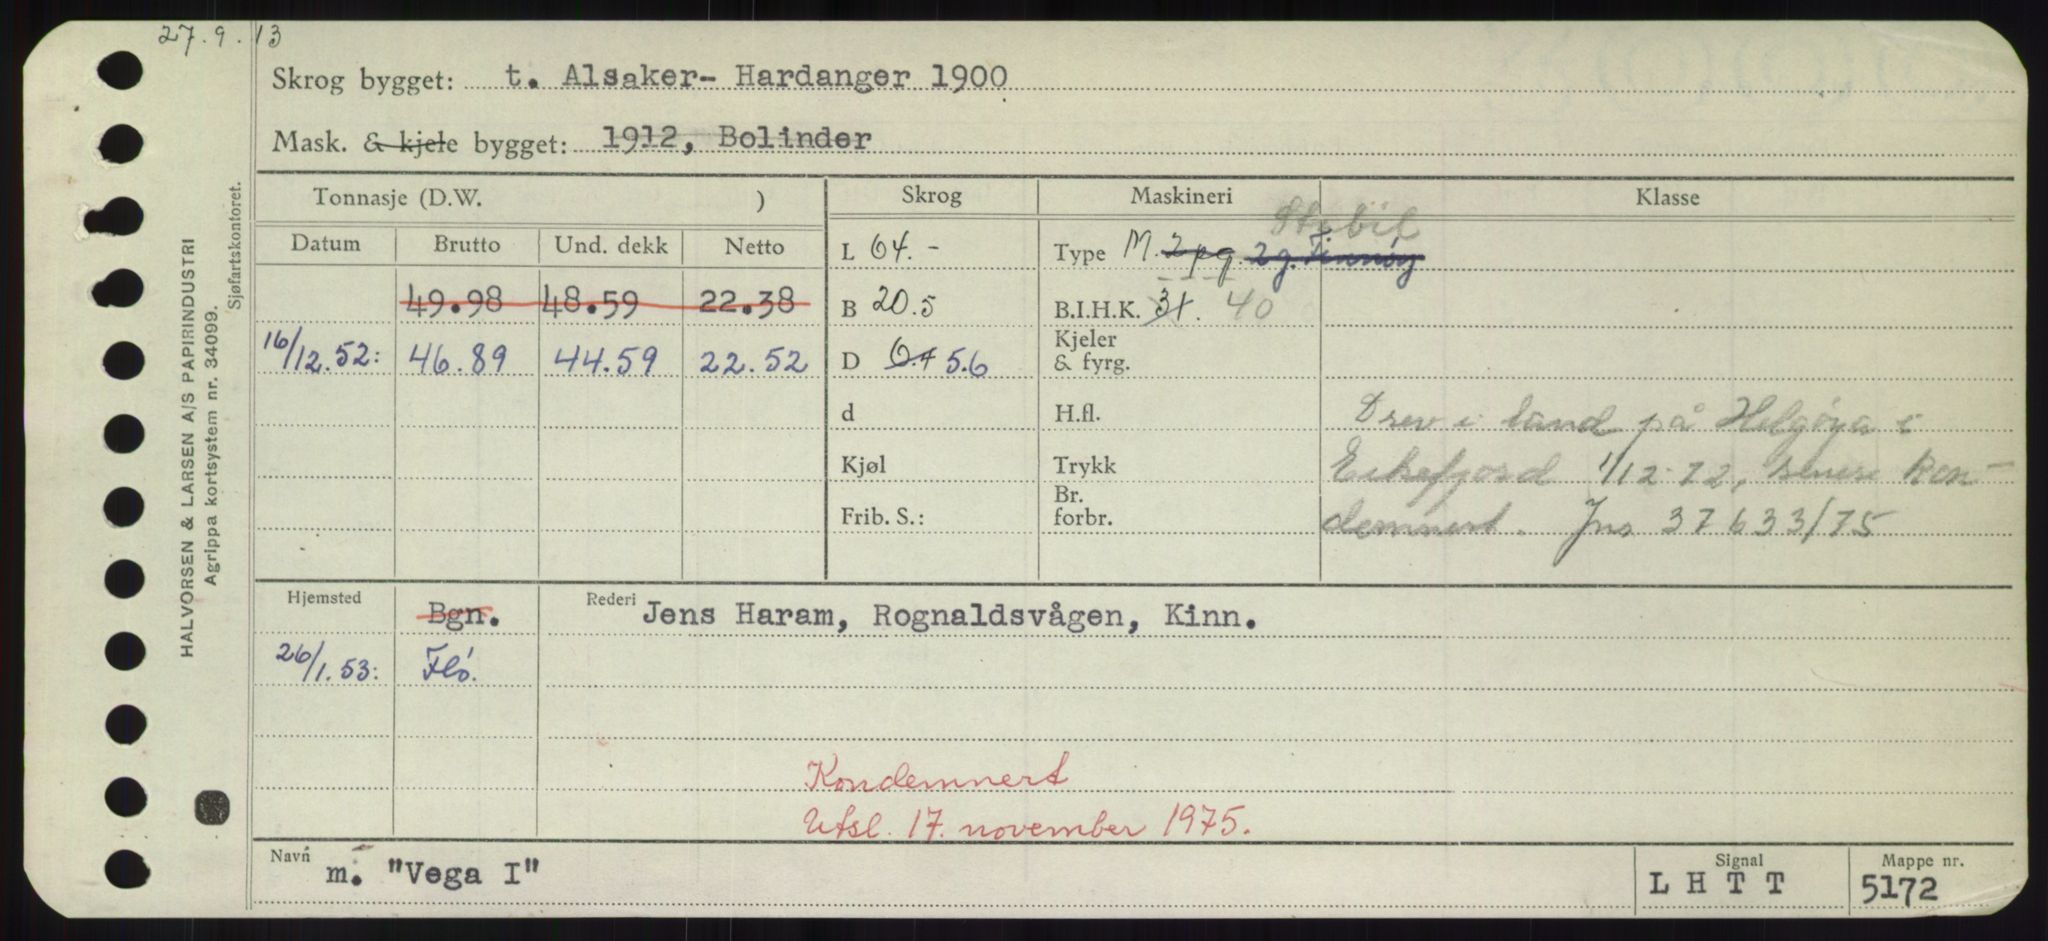 27.9.13
Skrog bygget: t. Alsaker- Hardanger 1900
Mask. & kjele bygget: 1912, Bolinder
Tonnasje (D.W. ) Skrog Maskineri Klasse
Stabil
Datum Brutto Und. dekk Netto L 64.- Type M. 2 pg. 2g. Finnøy
49.98 48.59 22.38 B 20.5 B.I.H.K. 31. 40
16/12.52: 46.89 44.59 22.52 D 6.4 5.6 Kjeler & fyrg.
d H.fl. Drev i land på Helgøya i
Kjøl Trykk Eikefjord 1/12-72, senere kon-
Frib. S.: Br. forbr. demnert. Jnr 37633/75
Hjemsted Bgn. Rederi Jens Haram, Rognaldsvågen, Kinn.
26/1.53: Flø.
Kondemnert
Utsl. 17. november 1975.
Navn m. "Vega I" Signal LHTT Mappe nr. 5172
HALVORSEN & LARSEN A/S PAPIRINDUSTRI
Agrippa kortsystem nr. 34099.
Sjøfartskontoret.